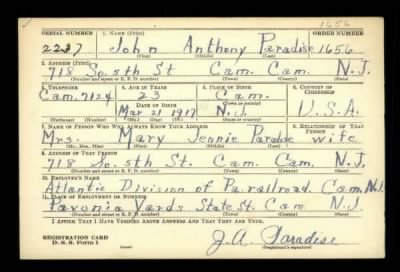 1656
SERIAL NUMBER 1. NAME (Print) ORDER NUMBER
2237 John Anthony Paradise 1656
(First) (Middle) (Last)
2. ADDRESS (Print)
718 So. 5th St Cam. Cam. N.J.
(Number and street or R. F. D. number) (Town) (County) (State)
3. TELEPHONE 4. AGE IN YEARS 5. PLACE OF BIRTH 6. COUNTRY OF CITIZENSHIP
Cam. 7124 23 Cam.
DATE OF BIRTH (Town or county)
Mar 21 1917 N.J. U.S.A.
(Exchange) (Number) (Mo.) (Day) (Yr.) (State or country)
7. NAME OF PERSON WHO WILL ALWAYS KNOW YOUR ADDRESS 8. RELATIONSHIP OF THAT PERSON
Mrs. Mary Jennie Paradise wife
(Mr., Mrs., Miss) (First) (Middle) (Last)
9. ADDRESS OF THAT PERSON
718 So. 5th St. Cam. Cam. N.J.
(Number and street or R. F. D. number) (Town) (County) (State)
10. EMPLOYER'S NAME
Atlantic Division of Pa. railroad. Cam. N.J.
11. PLACE OF EMPLOYMENT OR BUSINESS
Pavonia Yards State St. Cam N.J.
(Number and street or R. F. D. number) (Town) (County) (State)
I AFFIRM THAT I HAVE VERIFIED ABOVE ANSWERS AND THAT THEY ARE TRUE.
REGISTRATION CARD
D. S. S. Form 1 (over) J.A. Paradise
(Registrant's signature)